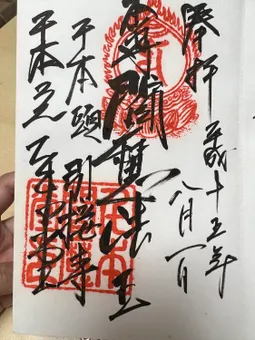 奉拝 平成十五年
八月一日
閻魔法王
千本頭 引接寺
千本ゑんま堂